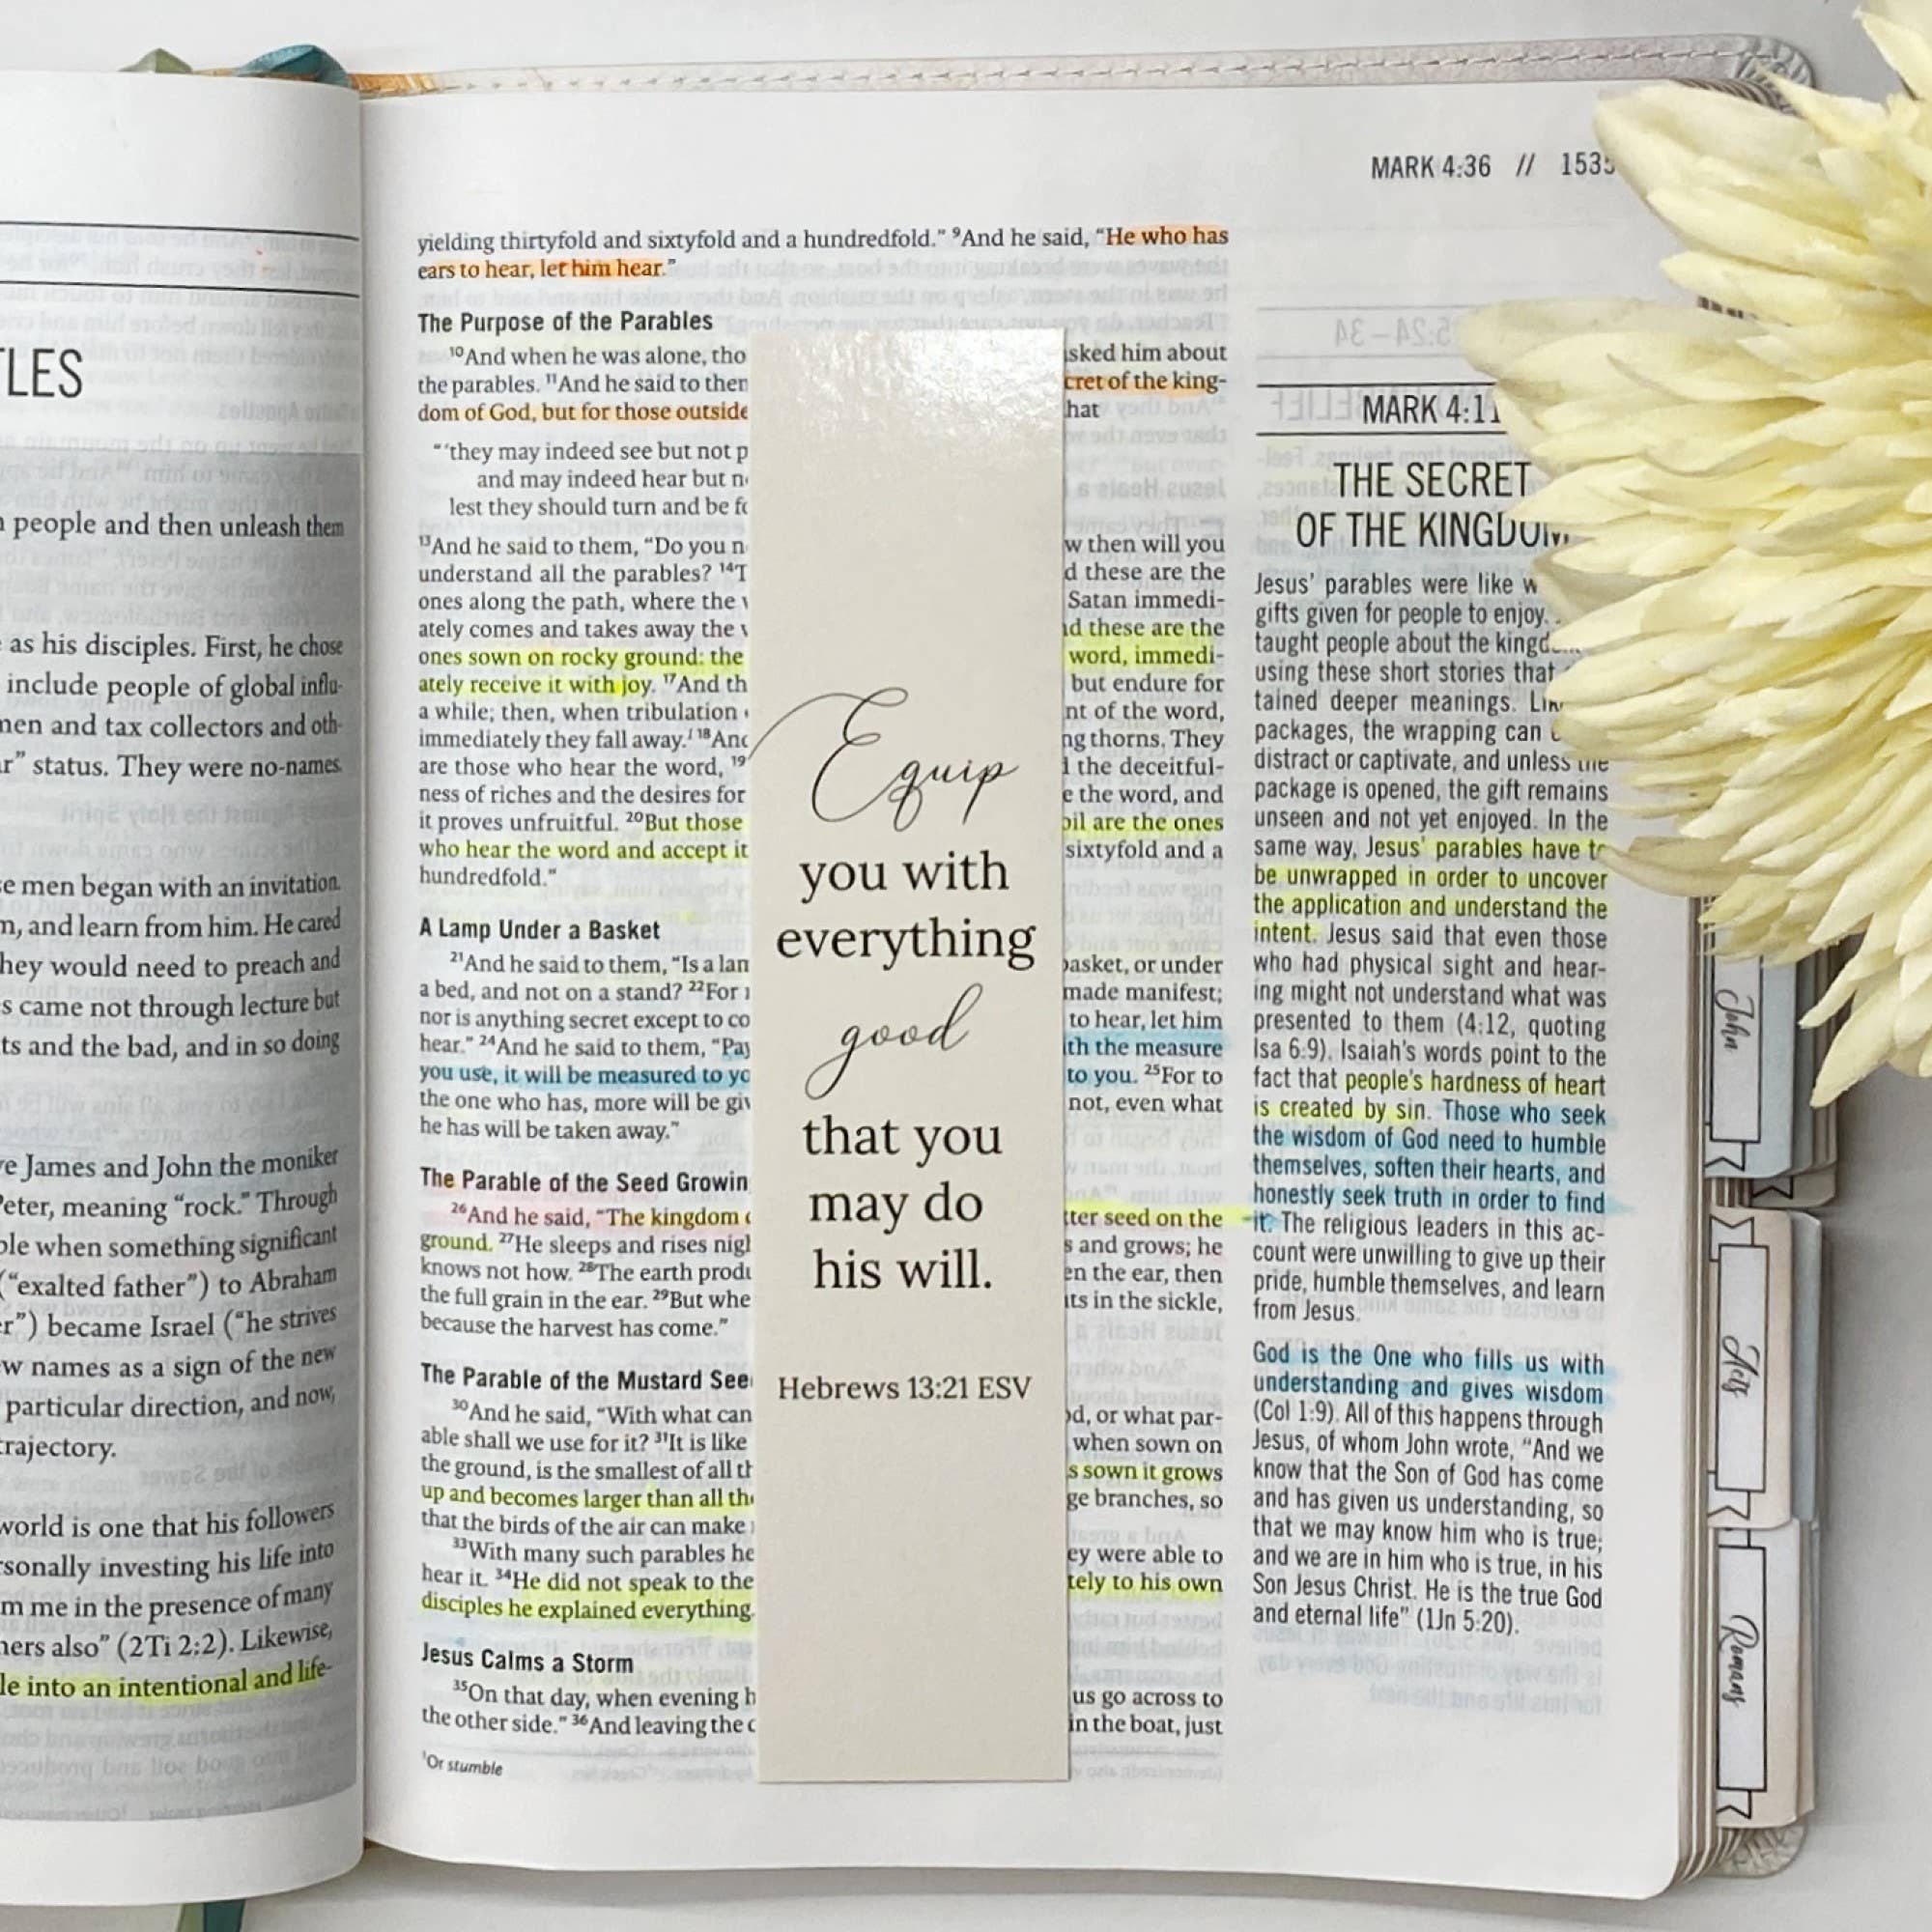 LES
people and then unleash them
as his disciples. First, he chose
include people of global influ-
men and tax collectors and oth-
status. They were no-names.
men began with an invitation.
and learn from him. He cared
they would need to preach and
came not through lecture but
and the bad, and in so doing
James and John the moniker
Peter, meaning “rock.” Through
when something significant
(“exalted father”) to Abraham
became Israel (“he strives
names as a sign of the new
particular direction, and now,
trajectory.
world is one that his followers
investing his life into
me in the presence of many
also” (2Ti 2:2). Likewise,
into an intentional and life-
MARK 4:36 //
yielding thirtyfold and sixtyfold and a hundredfold.” 9And he said, “He who has
ears to hear, let him hear.”
The Purpose of the Parables
10And when he was alone, tho
the parables. 11And he said to
dom of God, but for those outside
“‘they may indeed see but not
and may indeed hear but
lest they should turn and be
13And he said to them, “Do you
understand all the parables? 14
ones along the path, where the
ately comes and takes away the
ones sown on rocky ground: the
ately receive it with joy. 17And
a while; then, when tribulation
immediately they fall away.1 18
are those who hear the word, 19
ness of riches and the desires for
it proves unfruitful. 20But those
who hear the word and accept it
hundredfold.”
A Lamp Under a Basket
21And he said to them, “Is a
a bed, and not on a stand? 22For
nor is anything secret except to
hear.” 24And he said to them, “Pay
you use, it will be measured to
the one who has, more will be
he has will be taken away.”
The Parable of the Seed Growin
26And he said, “The kingdom
ground. 27He sleeps and rises
knows not how. 28The earth
the full grain in the ear. 29But
because the harvest has come.”
The Parable of the Mustard
30And he said, “With what can
able shall we use for it? 31It is like
the ground, is the smallest of all
up and becomes larger than all
that the birds of the air can make
33With many such parables he
hear it. 34He did not speak to the
disciples he explained everything.
Jesus Calms a Storm
35On that day, when evening
the other side.” 36And leaving the
1Or stumble
Equip
you with
everything
good
that you
may do
his will.
Hebrews 13:21 ESV
sked him about
cret of the king-
hat
then will you
these are the
Satan immedi-
these are the
word, immedi-
but endure for
of the word,
thorns. They
the deceitful-
the word, and
are the ones
sixtyfold and a
basket, or under
made manifest;
to hear, let him
the measure
to you. 25For to
not, even what
seed on the
and grows; he
the ear, then
in the sickle,
or what par-
when sown on
sown it grows
branches, so
were able to
to his own
us go across to
in the boat, just
MARK 4:11
THE SECRET
OF THE KINGDOM
Jesus’ parables were like
gifts given for people to enjoy.
taught people about the
using these short stories that
tained deeper meanings.
packages, the wrapping can
distract or captivate, and unless the
package is opened, the gift remains
unseen and not yet enjoyed. In the
same way, Jesus’ parables have to
be unwrapped in order to uncover
the application and understand the
intent. Jesus said that even those
who had physical sight and hear-
ing might not understand what was
presented to them (4:12, quoting
Isa 6:9). Isaiah’s words point to the
fact that people’s hardness of heart
is created by sin. Those who seek
the wisdom of God need to humble
themselves, soften their hearts, and
honestly seek truth in order to find
it. The religious leaders in this ac-
count were unwilling to give up their
pride, humble themselves, and learn
from Jesus.
God is the One who fills us with
understanding and gives wisdom
(Col 1:9). All of this happens through
Jesus, of whom John wrote, “And we
know that the Son of God has come
and has given us understanding, so
that we may know him who is true;
and we are in him who is true, in his
Son Jesus Christ. He is the true God
and eternal life” (1Jn 5:20).
John
Acts
Romans